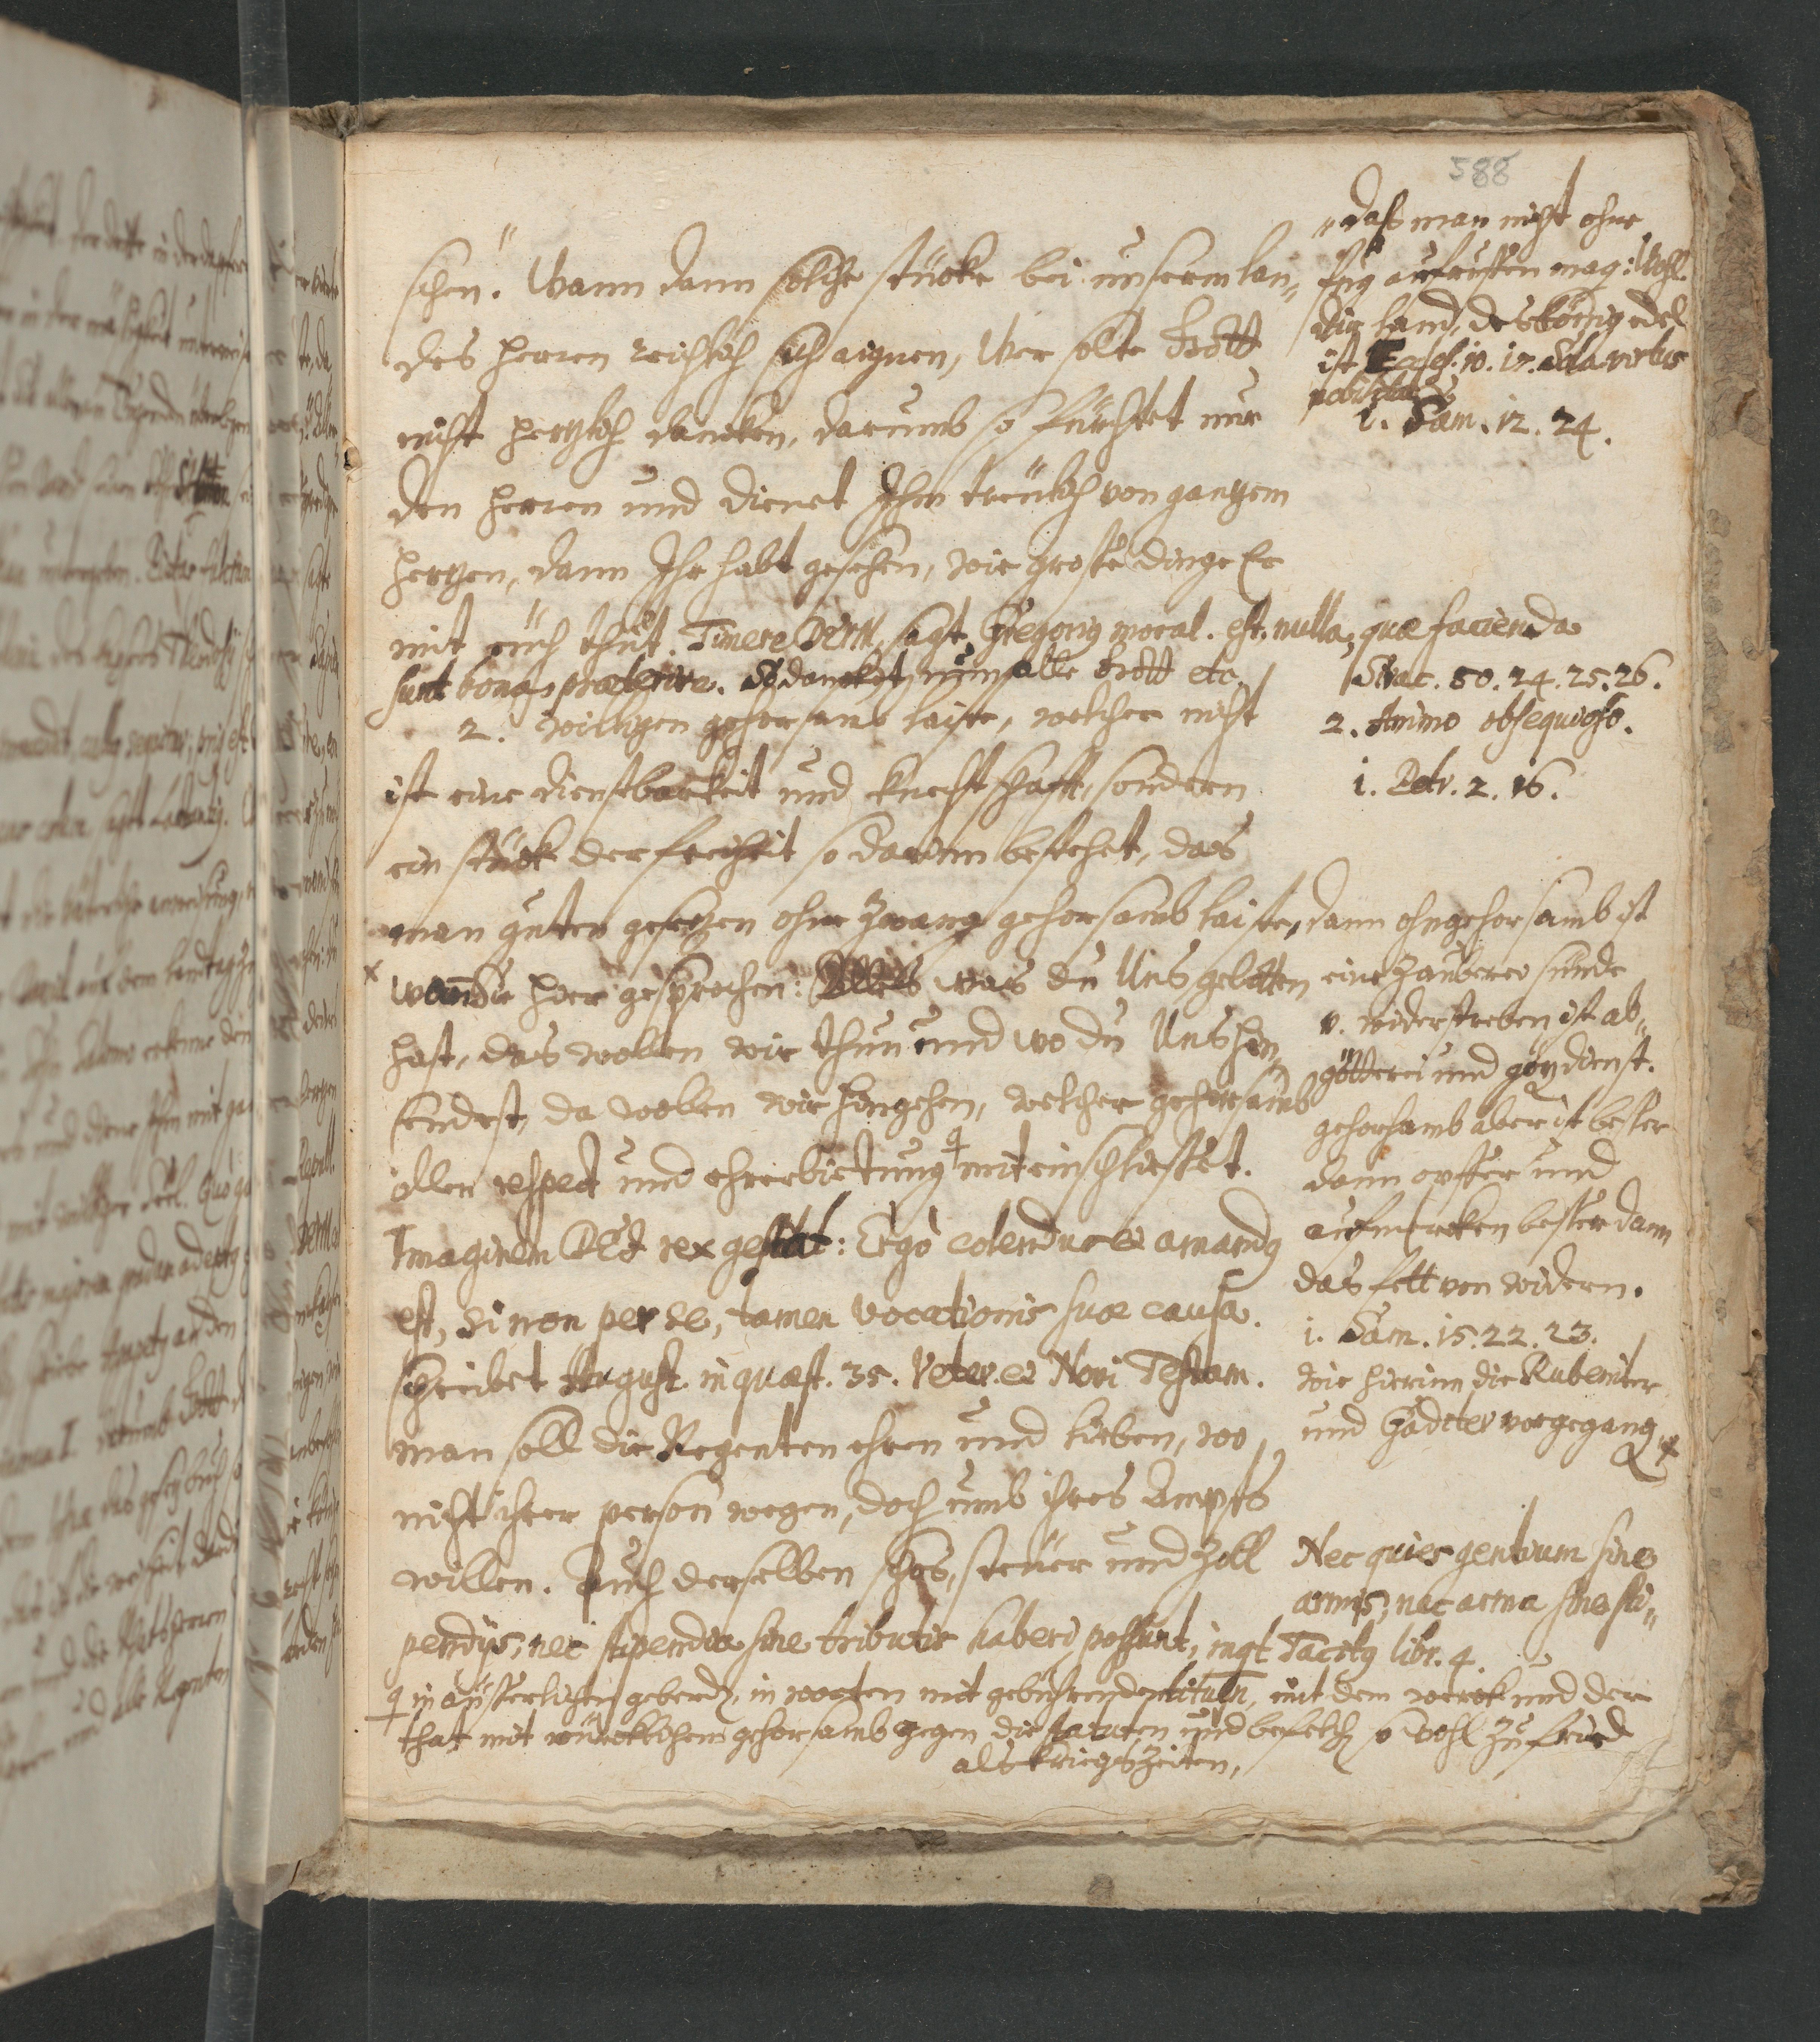 588
schen." Wann dann solche stücke bei unserm lan¬
des herren reichlich sich aignen, Wer solte Gott
nicht hertzlich dancken, darumb so fürchtet nur
den herren und dienet Ihm treülich von gantzem
hertzen, dann Ihr habt gesehen, wie grosse dinge Er
mit eüch thut. Timere DEUM, sagt Gregorius moral. est, nulla, quæ facienda
sunt bona, præterire. So dancket nun alle Gott etc.
2. willigen gehorsamb laiste, welcher nicht
ist eine dienstbarkeit und knechtschafft, sondern
ein stück der freiheit so darinn bestehet, das
man guten gesetzen ohne zwang gehorsamb laiste,
wann sie hier gesprochen: Alles was du Uns gebotten
hast, das wollen wir thun und wo du Uns hin¬
sendest, da wollen wir hingehen, welcher gehorsamb
allen respect und ehrerbietung mit einschliesset.
Imaginem DEI rex gestat: Ergò colendus et amandus
est, si non per se, tamen vocationis suæ causa.
schreibet August. in quæst. 35. Veter. et Novi Testam.
man soll die Regenten ehren und lieben, wo
nicht ihrer person wegen, doch umb ihres Ampts
willen. Auch derselben schos, steüer und Zoll
pendijs, nec stipendia sine tributis haberi possunt, inqt Tacitus libr. 4.
in äüsserlichen geberd, in worten mit gebührenden tituln, mit dem werck und der
that mit würcklichem gehorsamb gegen die statuten und befelch so wohl zu fried
als kriegszeiten,
"daß man nicht ohne
fug aufrucken mag: Wohl
dir land, des könig edel
ist Eccles. 10. 17. Sola virtus
nobilitat
1. Sam. 12. 24.
Sirac. 50. 24. 25. 26.
2. Animo obsequioso.
1. Petr. 2. 16.
dann ohngehorsamb ist
eine Zauberei sünde
v. widerstreben ist ab¬
götterei und götzendienst.
gehorsamb aber ist besser
dann opffer und
aufmercken besser dann
das fett von widern.
1. Sam. 15. 22. 23.
wie hierinn die Rubeniter
und Gaditer vorgegang
Nec quies gentium sine
armis, nec arma sine sti¬